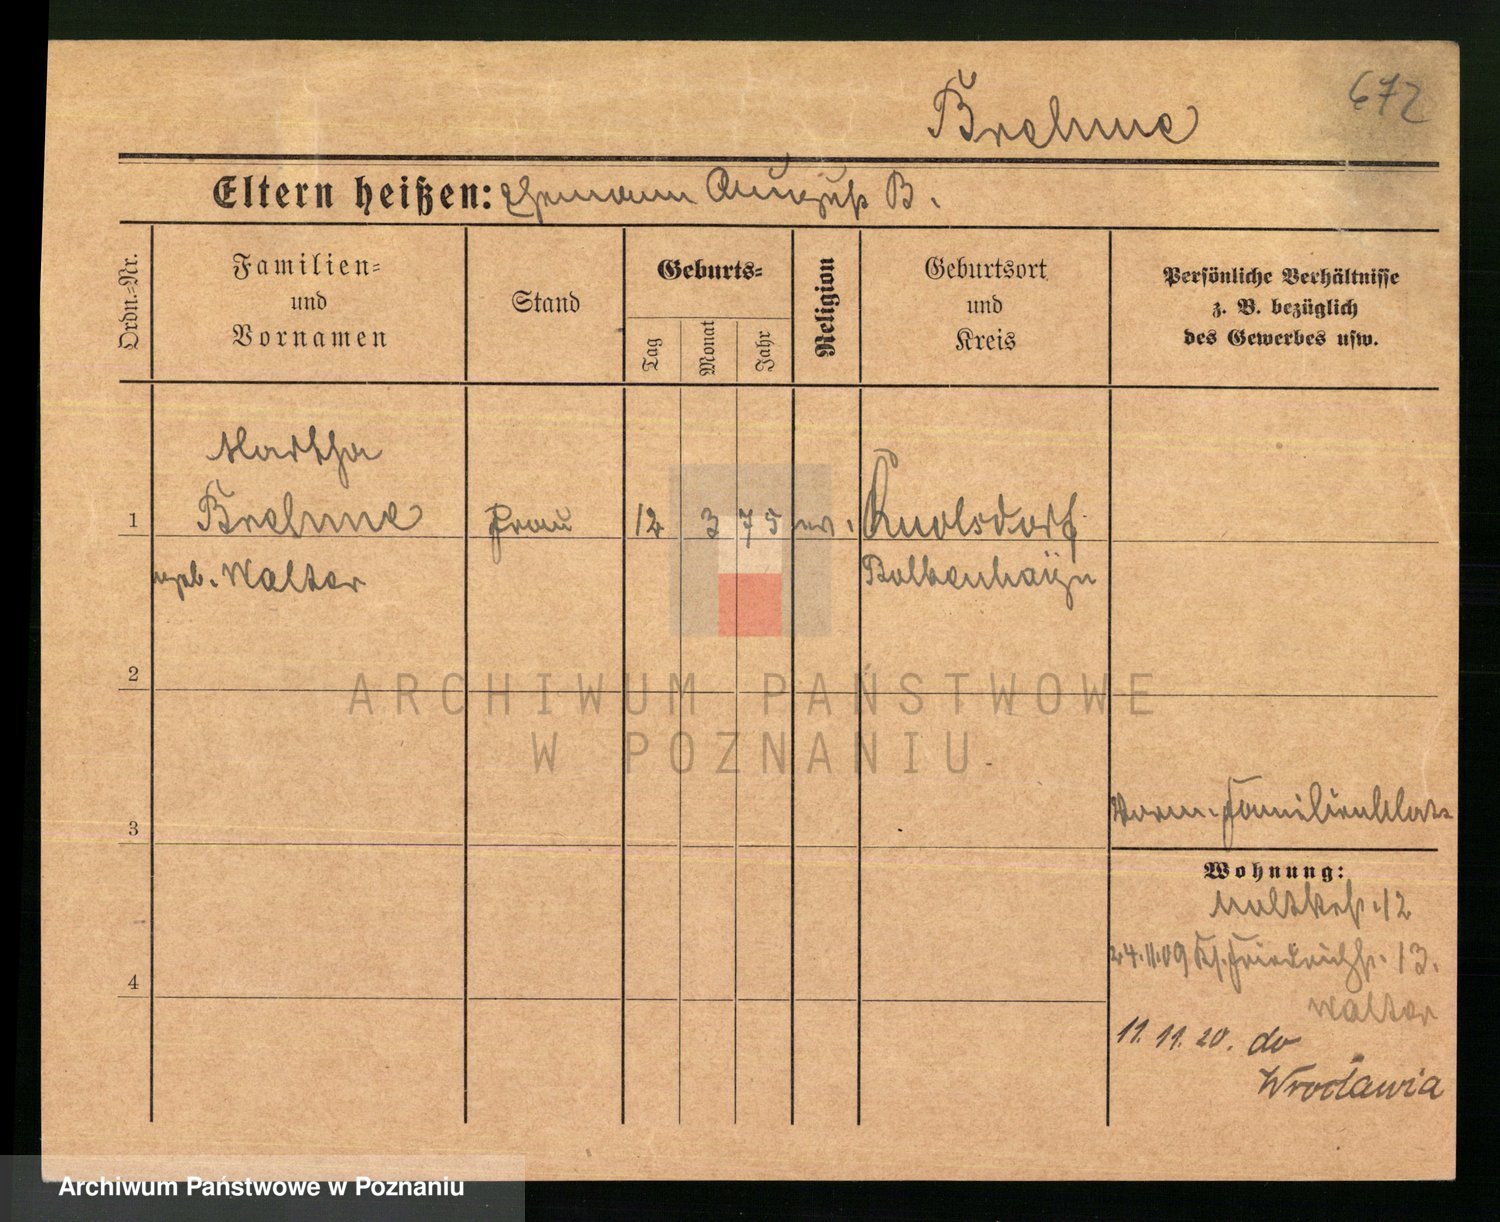 672
Brehme
Eltern heißen: Ehemann August B.
Ordn.-Nr.
Familien-
und
Vornamen
Stand
Geburts-
Tag
Monat
Jahr
Religion
Geburtsort
und
Kreis
Persönliche Verhältnisse
z. B. bezüglich
des Gewerbes usw.
Martha
1 Brehme Frau 12 3 75 ev.
geb. Walter
Bolkenhayn
2
ARCHIWUM PAŃSTWOWE
W POZNANIU
3
Familienblatt
Wohnung:
Moltkestr. 12
24.11.09 Friedrichstr. 13.
4
Walter
11. 11. 20. do
Wrocławia
Archiwum Państwowe w Poznaniu